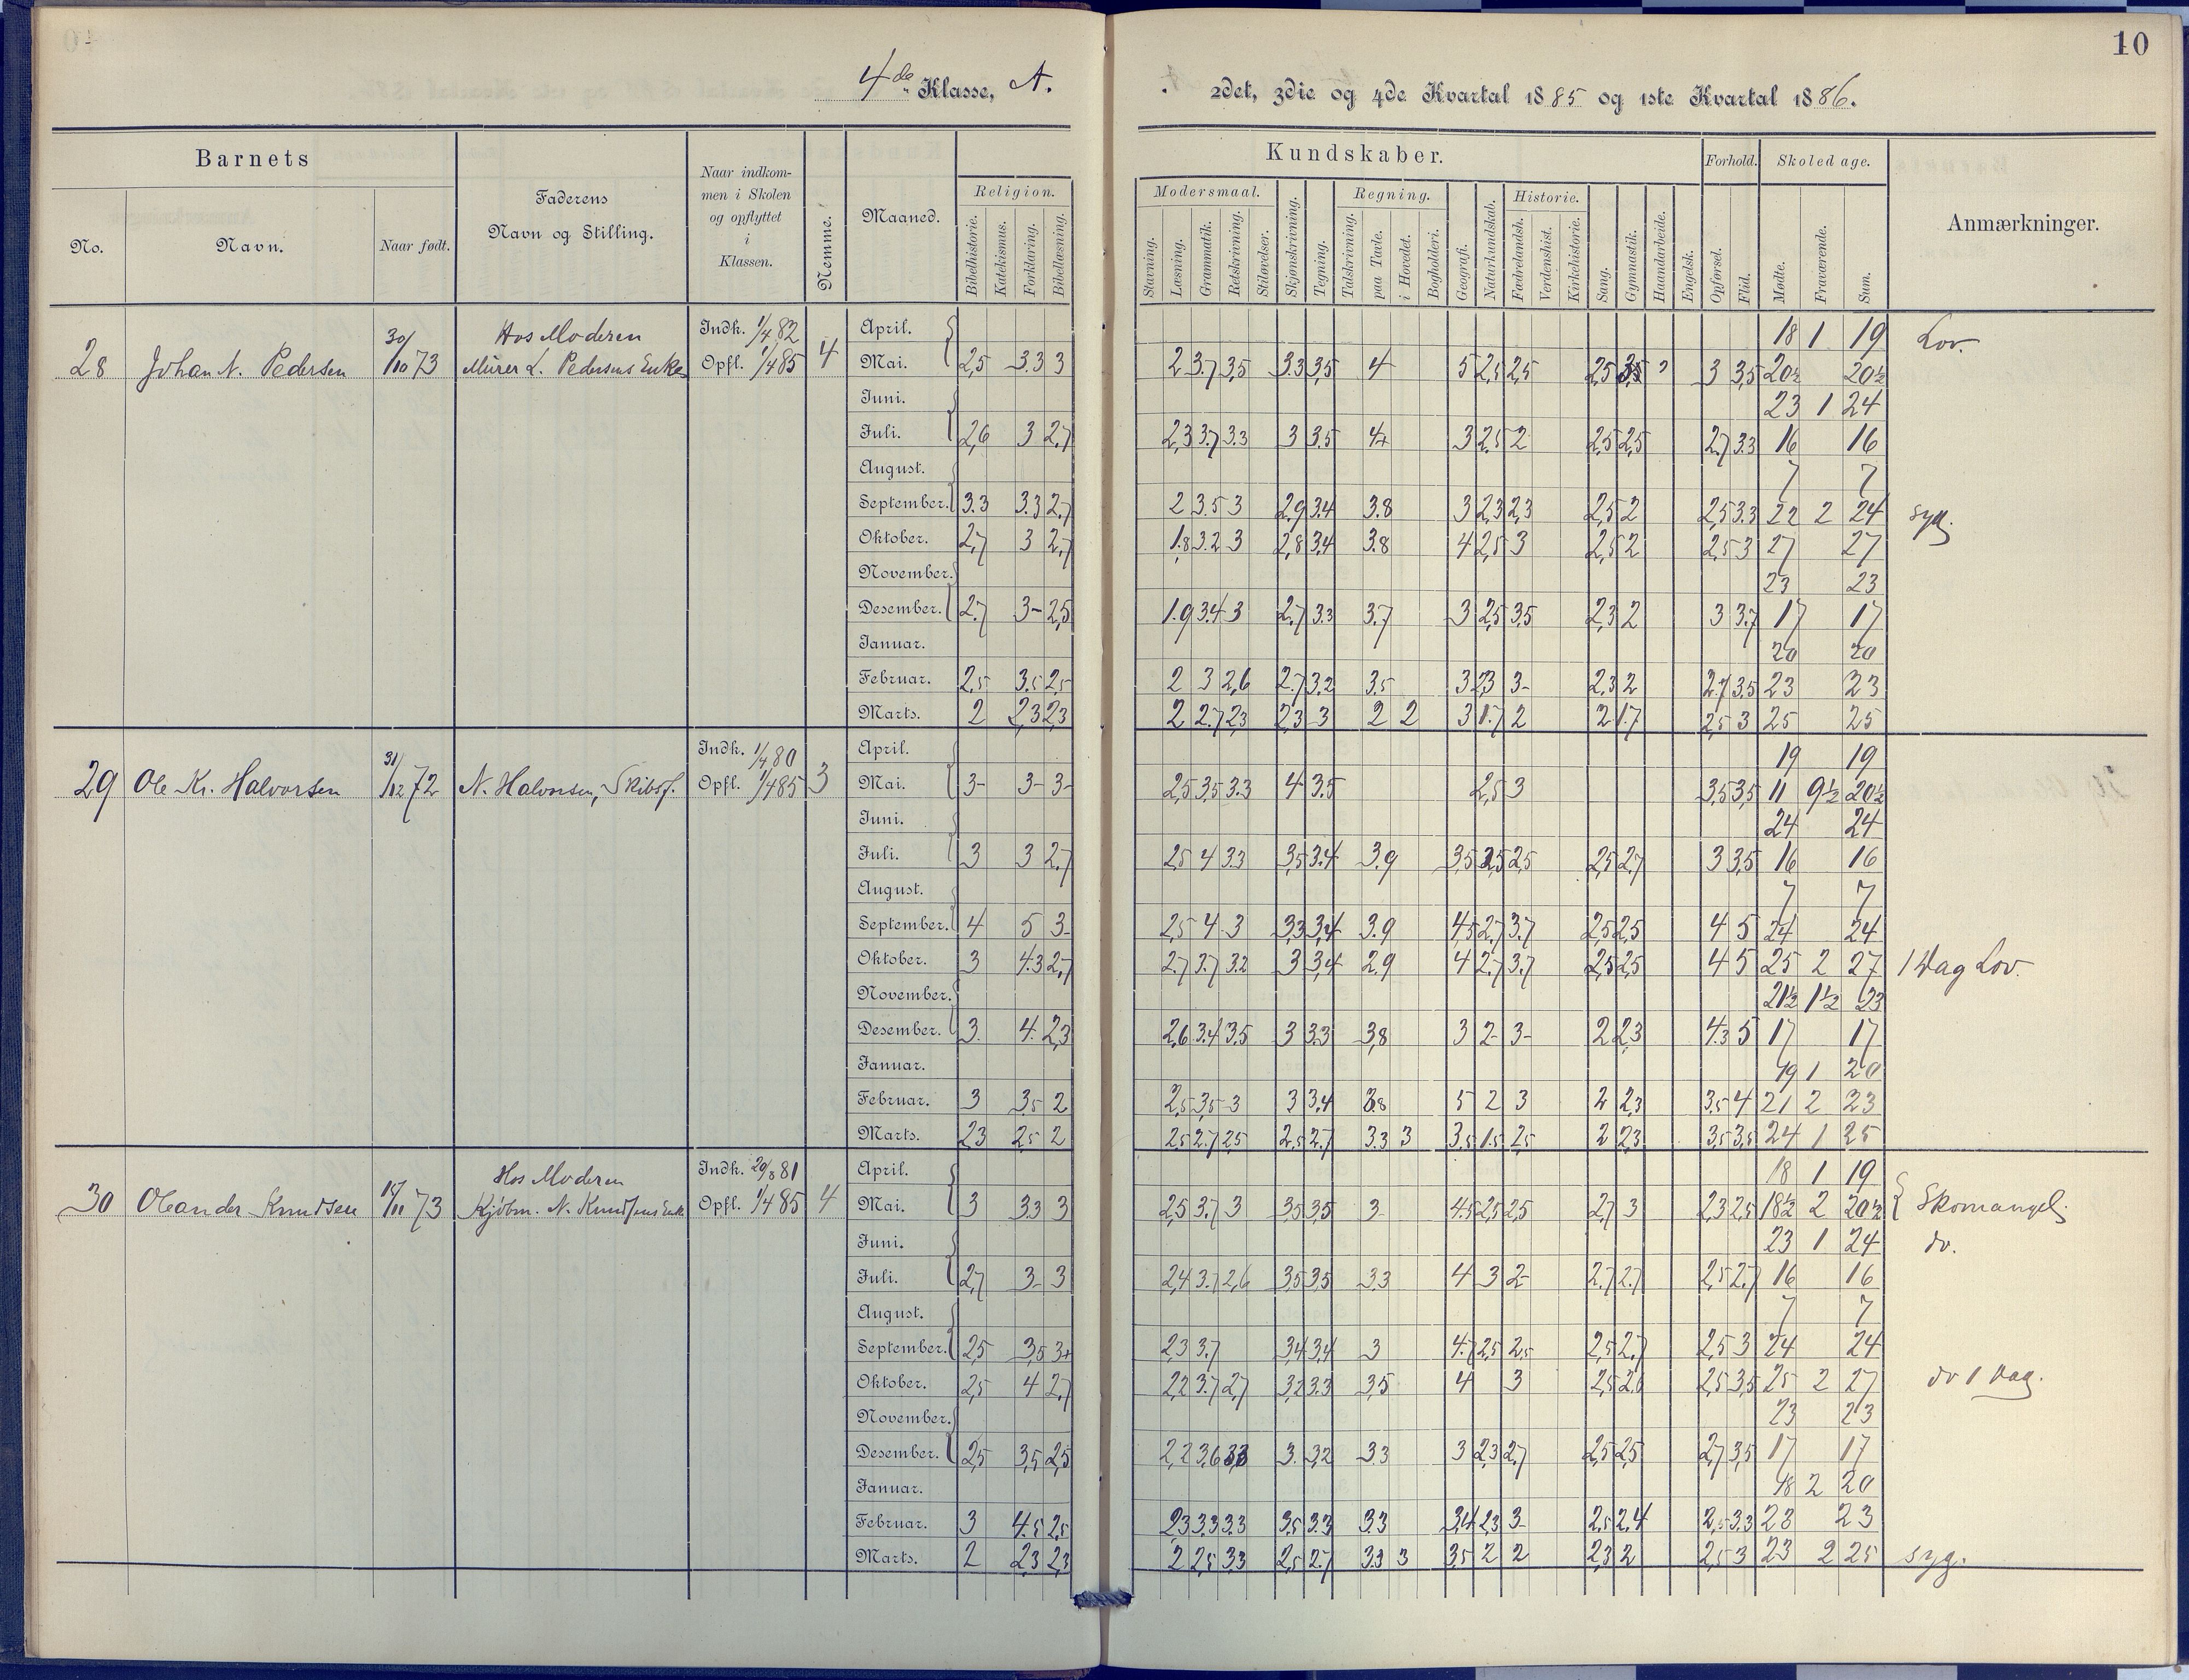 10
4de Klasse, A.
2det, 3die og 4de Kvartal 1885 og 1ste Kvartal 1886.
Barnets
No.
Navn.
Naar født.
Faderens
Navn og Stilling.
Naar indkom-
men i Skolen
og opflyttet
i
Klassen.
Nemme.
Maaned.
Religion.
Bibelhistorie.
Katekismus.
Forklaring.
Bibellæsning.
Kundskaber.
Modersmaal.
Stavning.
Læsning.
Grammatik.
Retskrivning.
Stiløvelser.
Skjønskrivning.
Tegning.
Regning.
Talskrivning.
paa Tavle.
i Hovedet.
Bogholderi.
Geografi.
Naturkundskab.
Historie.
Fædrelandsh.
Verdenshist.
Kirkehistorie.
Sang.
Gymnastik.
Haandarbeide.
Engelsk.
Forhold.
Opførsel.
Flid.
Skoledage.
Mødte.
Fraværende.
Sum.
Anmærkninger.
28 Johan N. Pedersen 30/10 73
Hos Moderen
Murer L. Pedersens Enke
Indk. 1/4 82
Opfl. 1/4 85 4
April. 18 1 19 Lov.
Mai. 2,5 3.3 3 2 3.7 3,5 3.3 3,5 4 5 2,5 2,5 2,5 3,5 3 3,5 20½ 20½
Juni. 23 1 24
Juli. 2,6 3 2,7 2,3 3.7 3.3 3 3.5 4+ 3 2,5 2 2,5 2,5 2.7 3.3 16 16
August. 7 7
September. 3.3 3.3 2,7 2 3.5 3 2,9 3.4 3.8 3 2,3 2,3 2,5 2 2,5 3.3 22 2 24 syg.
Oktober. 2,7 3 2,7 1.8 3.2 3 2,8 3,4 3.8 4 2,5 3 2,5 2 2,5 3 27 27
November. 23 23
Desember. 2.7 3- 2,5 1.9 3.4 3 2.7 3.3 3.7 3 2,5 3,5 2,3 2 3 3.7 17 17
Januar. 20 20
Februar. 2,5 3.5 2,5 2 3 2,6 2.7 3.2 3.5 3 2,3 3- 2,3 2 2.7 3.5 23 23
Marts. 2 2,3 2,3 2 2.7 2,3 2,3 3 2 2 3 1.7 2 2 1.7 2,5 3 25 25
29 Ole Kr. Halvorsen 31/12 72 N. Halvorsen, Skibsf.
Indk. 1/4 80
Opfl. 1/4 85 3
April. 19 19
Mai. 3- 3- 3- 2,5 3,5 3.3 4 3.5 2,5 3 3,5 3,5 11 9½ 20½
Juni. 24 24
Juli. 3 3 2,7 2,5 4 3.3 3,5 3.4 3.9 3,5 2,5 2,5 2,5 2,7 3 3,5 16 16
August. 7 7
September. 4 5 3- 2,5 4 3 3,3 3,4 3.9 4,5 2.7 3.7 2,5 2,5 4 5 24 24
Oktober. 3 4.3 2,7 2.7 3.7 3.2 3 3,4 2,9 4 2.7 3.7 2,5 2,5 4 5 25 2 27 1 Dag Lov.
November. 21½ 1½ 23
Desember. 3. 4. 2,3 2,6 3.4 3.5 3 3.3 3,8 3 2- 3- 2 2,3 4.3 5 17 17
Januar. 19 1 20
Februar. 3 3.5 2 2,5 3,5 3 3 3.4 3.8 5 2 3 2 2,3 3.5 4 21 2 23
Marts. 2,3 2,5 2 2,5 2.7 2,5 2,5 2.7 3.3 3 3.5 1.5 2,5 2 2,3 3,5 3,5 24 1 25
30 Oleander Knudsen 15/11 73
Hos Moderen
Kjøbm. N. Knudsens Enke
Indk. 20/8 81
Opfl. 1/4 85 4
April. 18 1 19
Mai. 3 3.3 3 2,5 3.7 3 3,5 3,5 3 4.5 2,5 2,5 2,7 3 2,3 2,5 18½ 2 20½ Skomangel.
Juni. 23 1 24 do.
Juli. 2,7 3- 3 2,4 3.7 2,6 3,5 3,5 3.3 4 3 2- 2.7 2.7 2,5 2.7 16 16
August. 7 7
September. 2,5 3,5 3+ 2,3 3.7 3,4 3,4 3 4.7 2,5 2,5 2,5 2,7 2,5 3 24 24
Oktober. 2,5 4 2,7 2,2 3.7 2,7 3,2 3.3 3,5 4 3 2,5 2,6 2,5 3,5 25 2 27 do 1 Dag.
November. 23 23
Desember. 2,5 3,5 2,5 2,2 3,6 3,3 3. 3,2 3.3 3 2,3 2,7 2,5 2,5 2,7 3,5 17 17
Januar. 18 2 20
Februar. 3 4.5 2,5 2,3 3.3 3.3 3.5 3.3 3.3 3,4 2,3 3- 2,5 2.4 2,5 3.3 23 23
Marts. 2 2,3 2,3 2 2,5 3.3 2,5 2.7 3.3 3 3.5 2 2 2,3 2 2,5 3 23 2 25 syg.